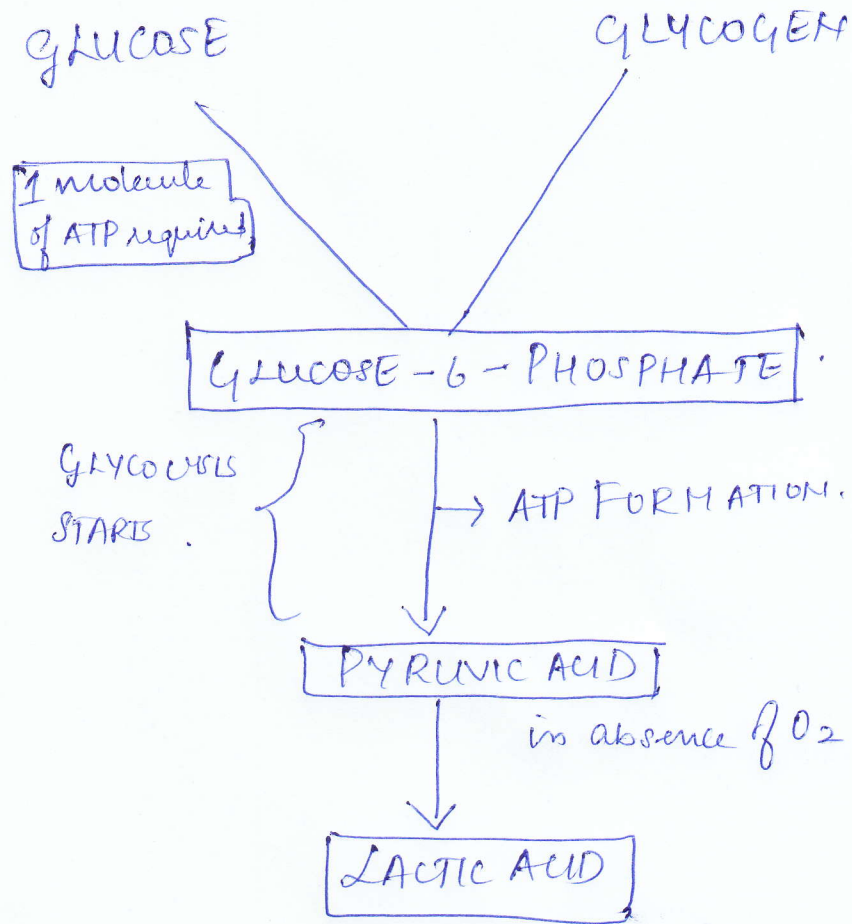 GLUCOSE
GLYCOGEN
1 molecule
of ATP required
GLUCOSE - 6 - PHOSPHATE.
GLYCOLYSIS
STARTS.
→ ATP FORMATION.
PYRUVIC ACID
in absence of O2
LACTIC ACID